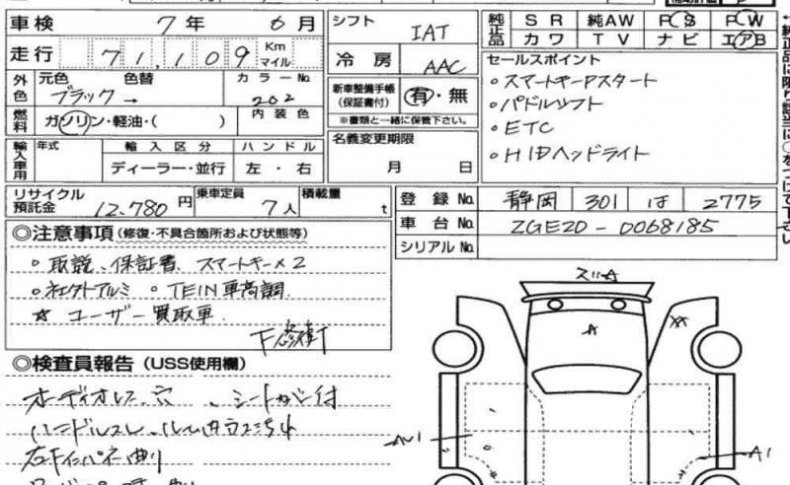 車検 7年 6月
走行 71,109 Km マイル
外色 元色 色替 カラーNo.
ブラック → 202
燃料 ガソリン・軽油・( ) 内装色
輸入車用 年式 輸入区分 ハンドル
ディーラー・並行 左・右
リサイクル預託金 12,780円 乗車定員 7人 積載量 t
シフト IAT
冷房 AAC
新車整備手帳(保証書付) 有・無
※書類と一緒に保管下さい。
名義変更期限
月 日
純正品 SR 純AW PS PW
カワ TV ナビ エアB
セールスポイント
◦スマートキーPスタート
◦パドルシフト
◦ETC
◦HIDヘッドライト
登録No. 静岡 301 は 2775
車台No. ZGE20-0068185
シリアルNo.
◎注意事項(修復・不具合箇所および状態等)
◦取説、保証書、スマートキー×2
◦社外アルミ ◦TEIN車高調
☆ ユーザー買取車
◎検査員報告(USS使用欄)
オーディオレス、穴、シートカバー付
ハンドルスレ、
A
A1